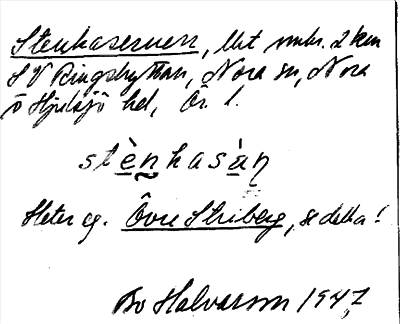 Stenkasernen, lht omkr. 2 km
SV Ringshyttan, Nora sn, Nora
o Hjulsjö hd, Ör. l.
stènkasàṇ
Heter eg. Övre Striberg, se detta!
Bo Halvarson 1947